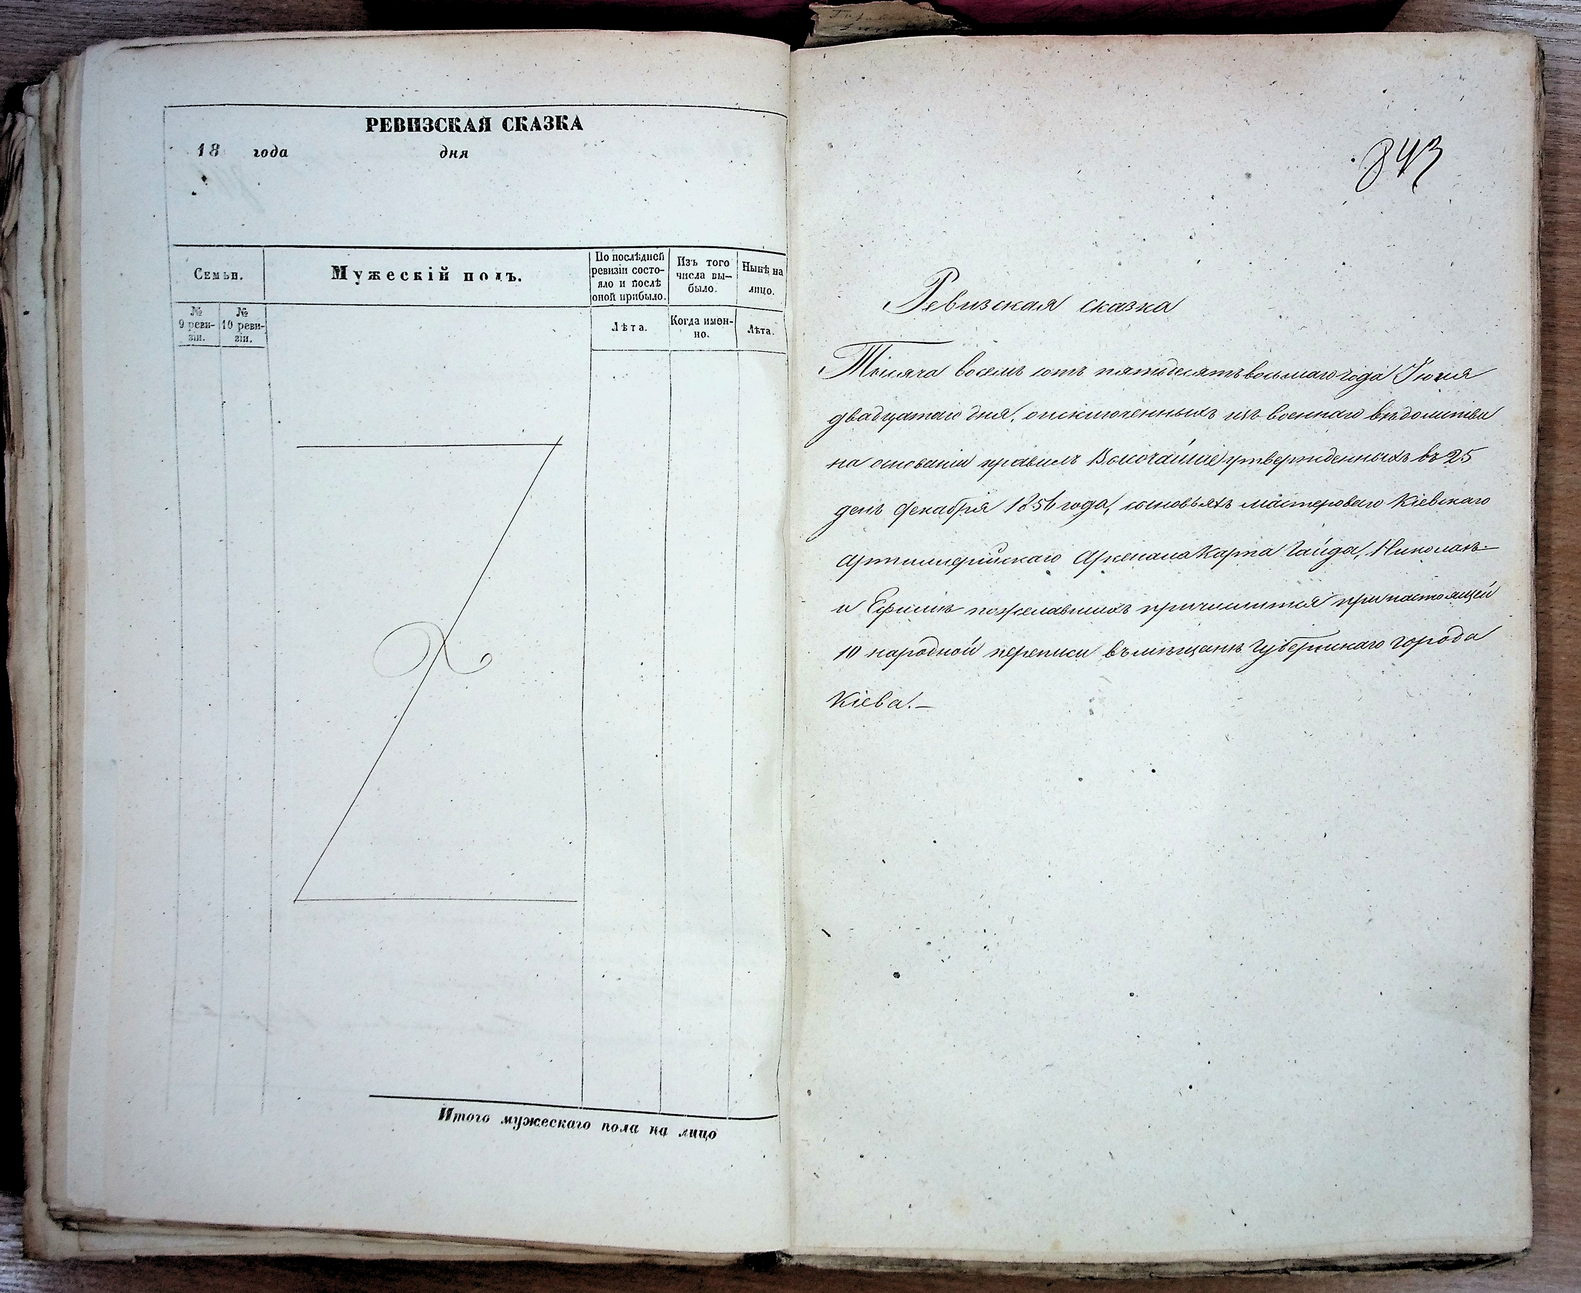 РЕВИЗСКАЯ СКАЗКА
18 года дня
Семьи.
Мужескій полъ.
По послѣдней
ревизіи состо-
яло и послѣ
оной прибыло.
Изъ того
числа вы-
было.
Нынѣ на
лицо.
№
9 реви-
зіи.
№
10 реви-
зіи.
Лѣта.
Когда имен-
но.
Лѣта.
Итого мужескаго пола на лицо
843
Ревизская сказка
Тысяча восемь сотъ пятьдесятъ восьмаго года Іюня
двадцатаго дня, о исключенныхъ изъ военнаго вѣдомства
на основаніи правилъ Высочайше утвержденныхъ въ 25
день Декабря 1856 года, сыновьяхъ мастероваго Кіевскаго
Артиллерійскаго Арсенала Карпа Гайда, Николаѣ
и Ефимѣ пожелавшихъ причислится при настоящей
10 народной переписи въ мѣщане Губернскаго города
Кіева.—